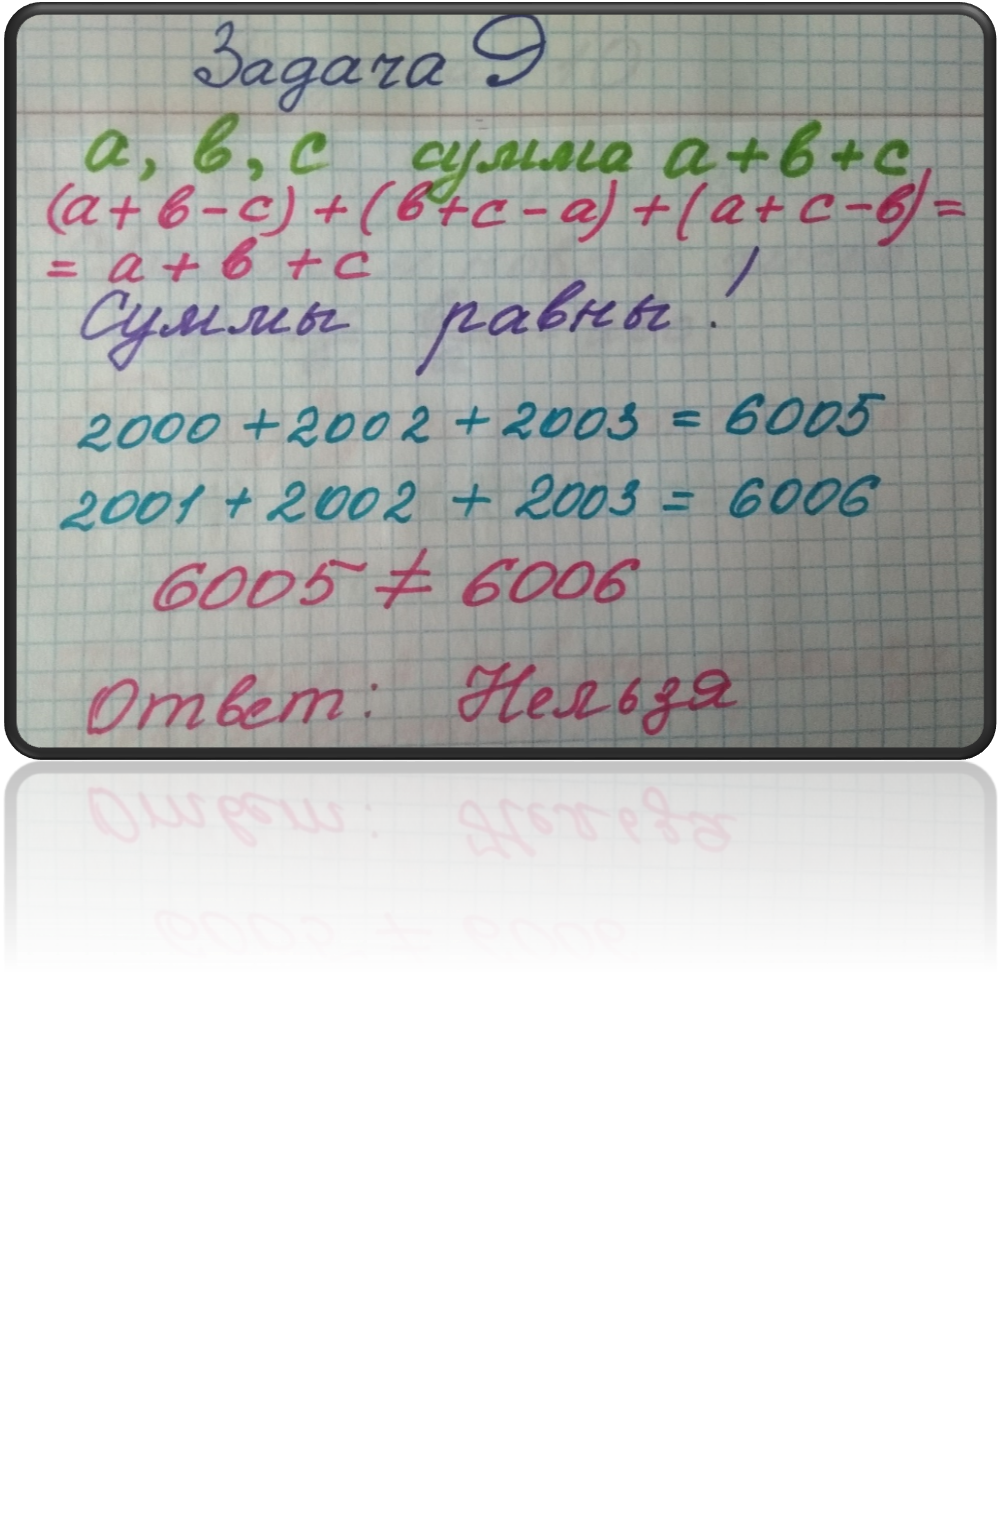 Задача 9
а, в, с сумма а+в+с
(а+в-с)+(в+с-а)+(а+с-в)=
= а+в+с
Суммы равны!
2000+2002+2003=6005
2001+2002+2003=6006
6005≠6006
Ответ: Нельзя